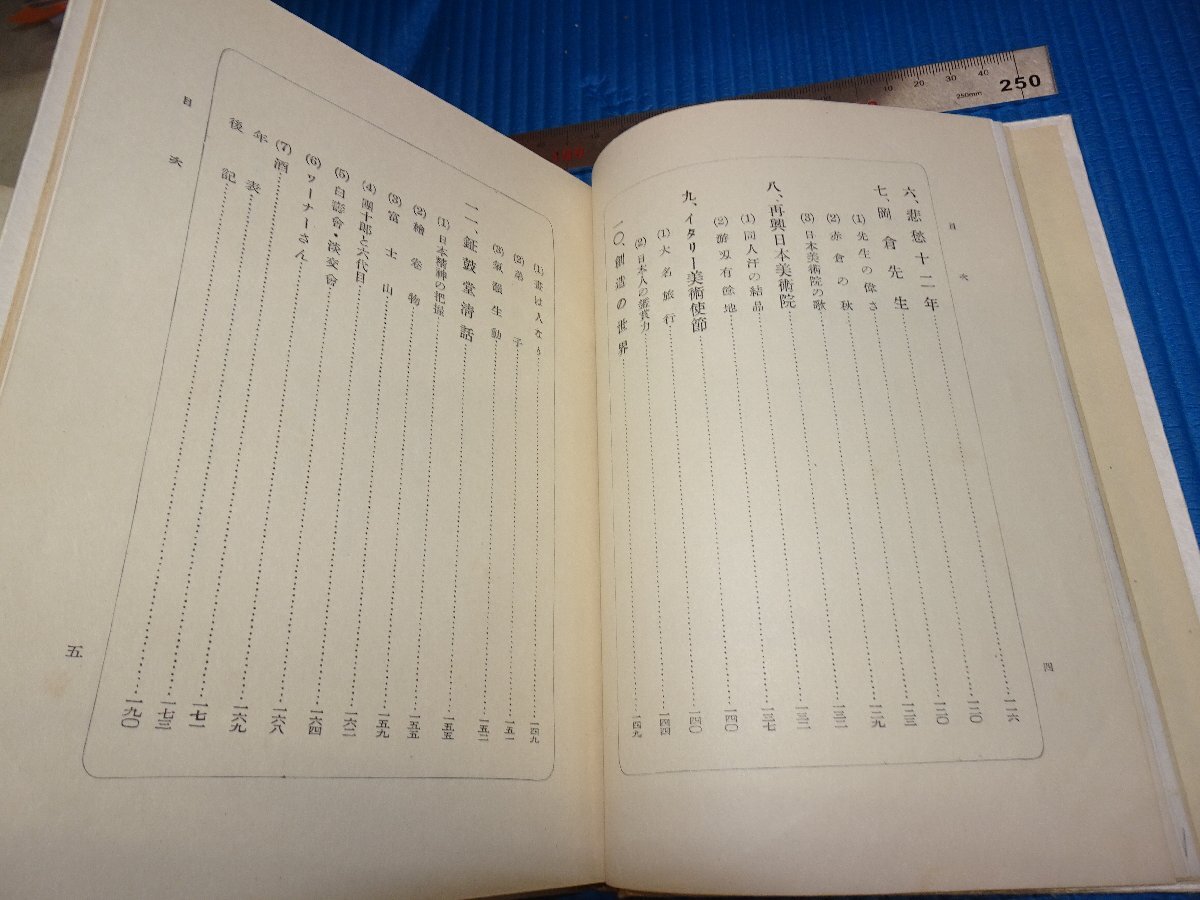 目次
六、悲愁十二年……一一六
七、岡倉先生……一二〇
(1)先生の偉さ……一二〇
(2)赤倉の秋……一二三
(3)日本美術院の歌……一二九
八、再興日本美術院……一三二
(1)同人汗の結晶……一三二
(2)游刃有餘地……一三七
九、イタリー美術使節……一四〇
(1)大名旅行……一四〇
(2)日本人の鑑賞力……一四四
一〇、創造の世界……一四九
四
(1)畫は人なり……一四九
(2)弟子……一五一
(3)氣韻生動……一五二
一一、鉦鼓堂清話……一五五
(1)日本精神の把握……一五五
(2)繪卷物……一五九
(3)富士山……一六二
(4)團十郎と六代目……一六四
(5)白壽會・淡交會……一六八
(6)ワーナーさん……一六九
(7)酒……一七一
年表……一七三
後記……一九〇
目次
五
10 20 30 40 250
250mm